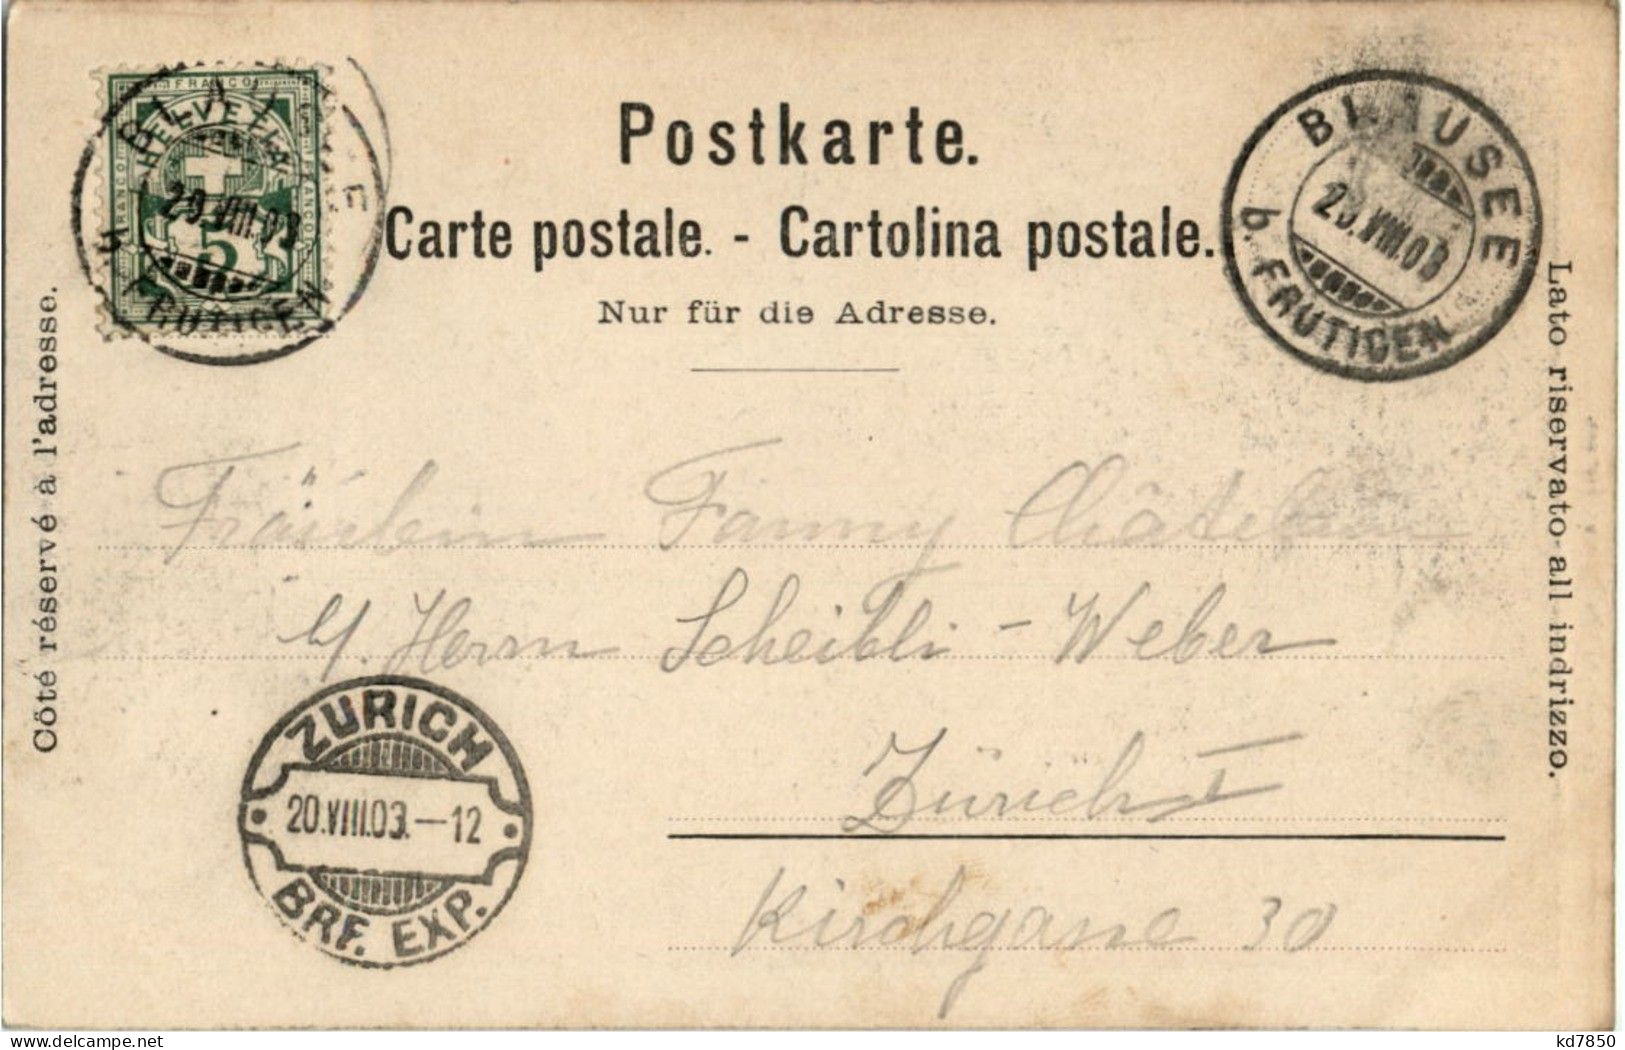 FRANCO
HELVETIA
FRANCO
FRANCO
5
29.VIII.03
FRUTIGEN
BLAUSEE
b. FRUTIGEN
29.VIII.03
Postkarte.
Carte postale. - Cartolina postale.
Nur für die Adresse.
Côté réservé à l'adresse.
Lato riservato all indrizzo.
Fräulein Fanny Châtelain
p/ Herrn Scheibli - Weber
Zürich I
Kirchgasse 30
ZÜRICH
20.VIII.03.-12
BRF. EXP.
kd7850